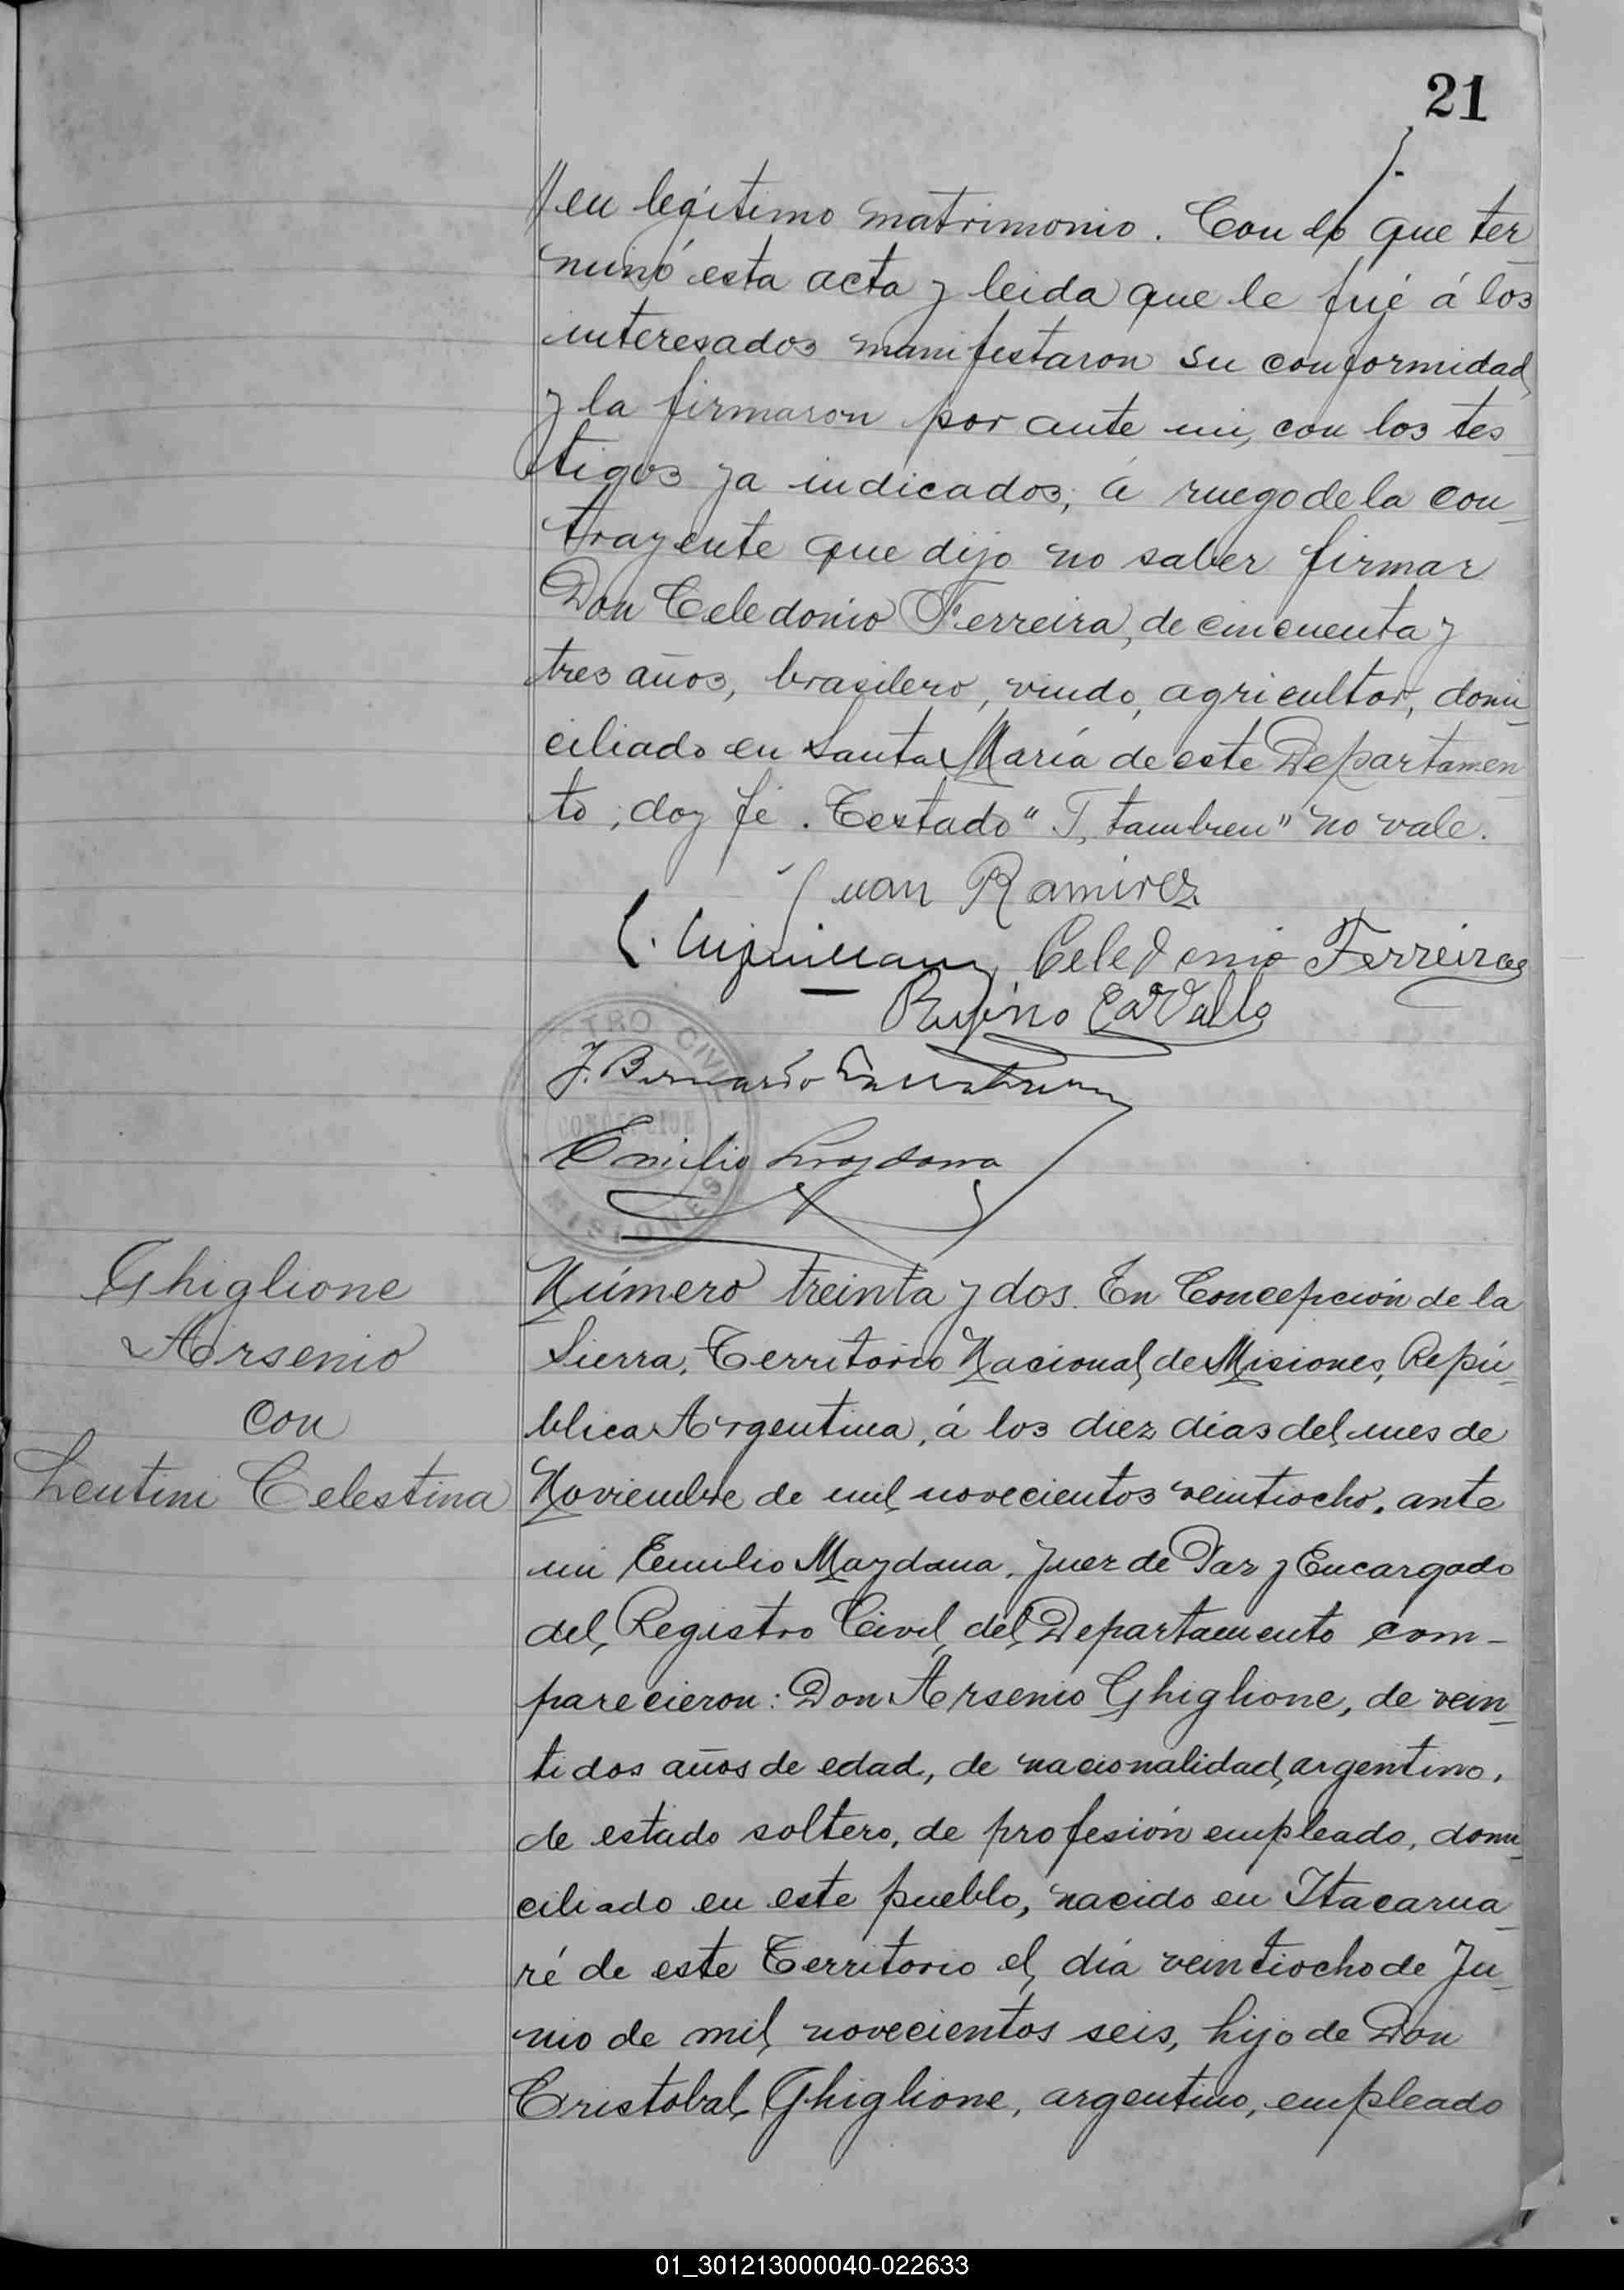 21
// en legítimo matrimonio. Con lo que ter
minó esta acta y leida que le fué á los
interesados manifestaron su conformidad
y la firmaron por ante mi, con los tes
tigos ya indicados; á ruego de la con
trayente que dijo no saber firmar
Don Celedonio Ferreira, de cincuenta y
tres años, brasilero, viudo, agricultor, domi
ciliado en Santa María de este Departamen
to; doy fé. Testado " T, tambien" no vale.
Juan Ramirez
Celedonio Ferreira
Rufino CarVallo
J. Bernardo
Emilio
TRO CIVIL
MISIONES
Ghiglione
Arsenio
con
Lentini Celestina
Número treinta y dos. En Concepción de la
Sierra, Territorio Nacional de Misiones, Repú
blica Argentina, á los diez dias del mes de
Noviembre de mil novecientos veintiocho, ante
mi Emilio Maydana, Juez de Paz y Encargado
del Registro Civil del Departamento com-
parecieron: Don Arsenio Ghiglione, de vein
tidos años de edad, de nacionalidad argentino,
de estado soltero, de profesión empleado, domi
ciliado en este pueblo, nacido en Itacarua
ré de este Territorio el dia veintiocho de Ju
nio de mil novecientos seis, hijo de Don
Cristobal Ghiglione, argentino, empleado
01_301213000040-022633